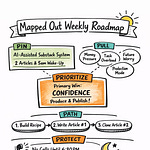 Mapped Out Weekly Roadmap
PIN
AI-Assisted Substack System
2 Articles & 5am Wake-Up
PULL
Money
Pressure
Task
Overload
Salary
Worry
Production
Mode
PRIORITIZE
Primary Win:
CONFIDENCE
Produce & Publish!
PATH
1. Build Recipe
2. Write Article #1
3. Clone Article #2
PROTECT